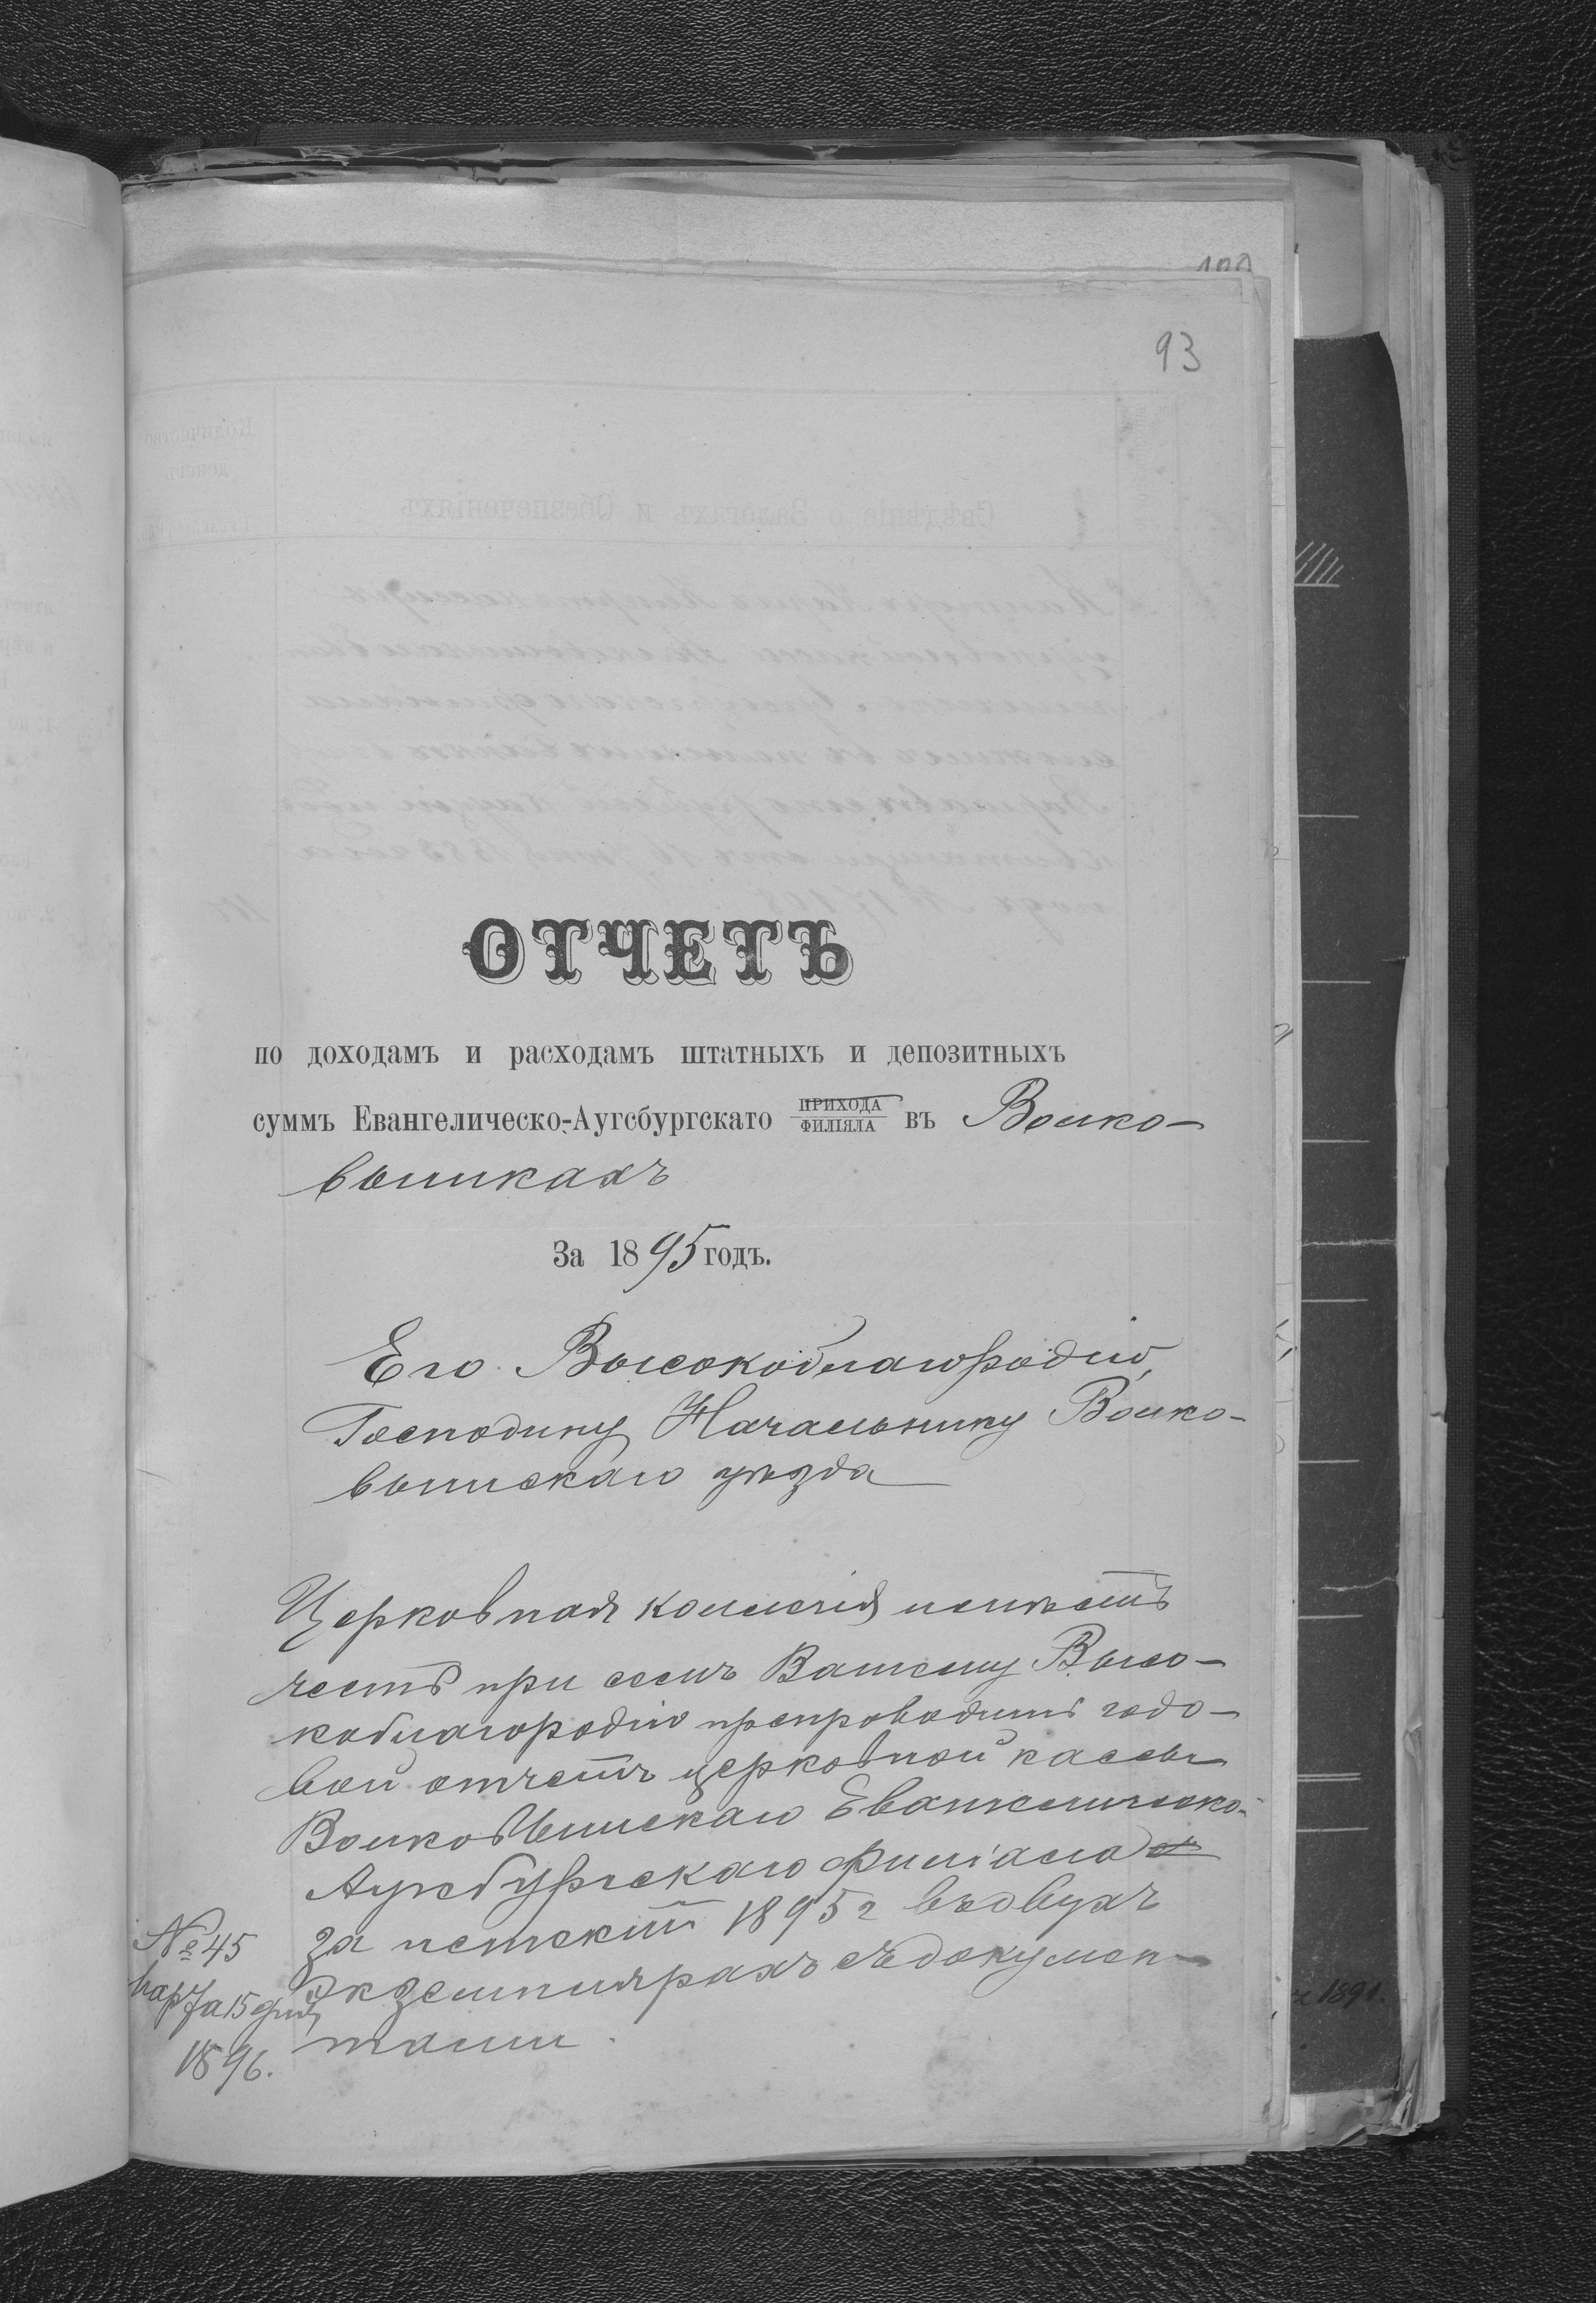 93
ОТЧЕТЪ
по доходамъ и расходамъ штатныхъ и депозитныхъ
суммъ Евангелическо-Аугсбургскаго ПРИХОДА ФИЛІЯЛА въ Волко-
вышкахъ
За 1895 годъ.
Его Высокоблагородію,
Господину Начальнику Волко-
вышскаго уѣзда
Церковная коллегія имѣетъ
честь при семъ Вашему Высо-
коблагородію препроводить годо-
вой отчетъ церковной кассы
Волковышскаго Евангелическо-
Аугсбургскаго филіала
за истекшій 1895 г въ двухъ
экземплярахъ съ докумен-
тами.
№ 45
марта 15 дня
1896.
1891.